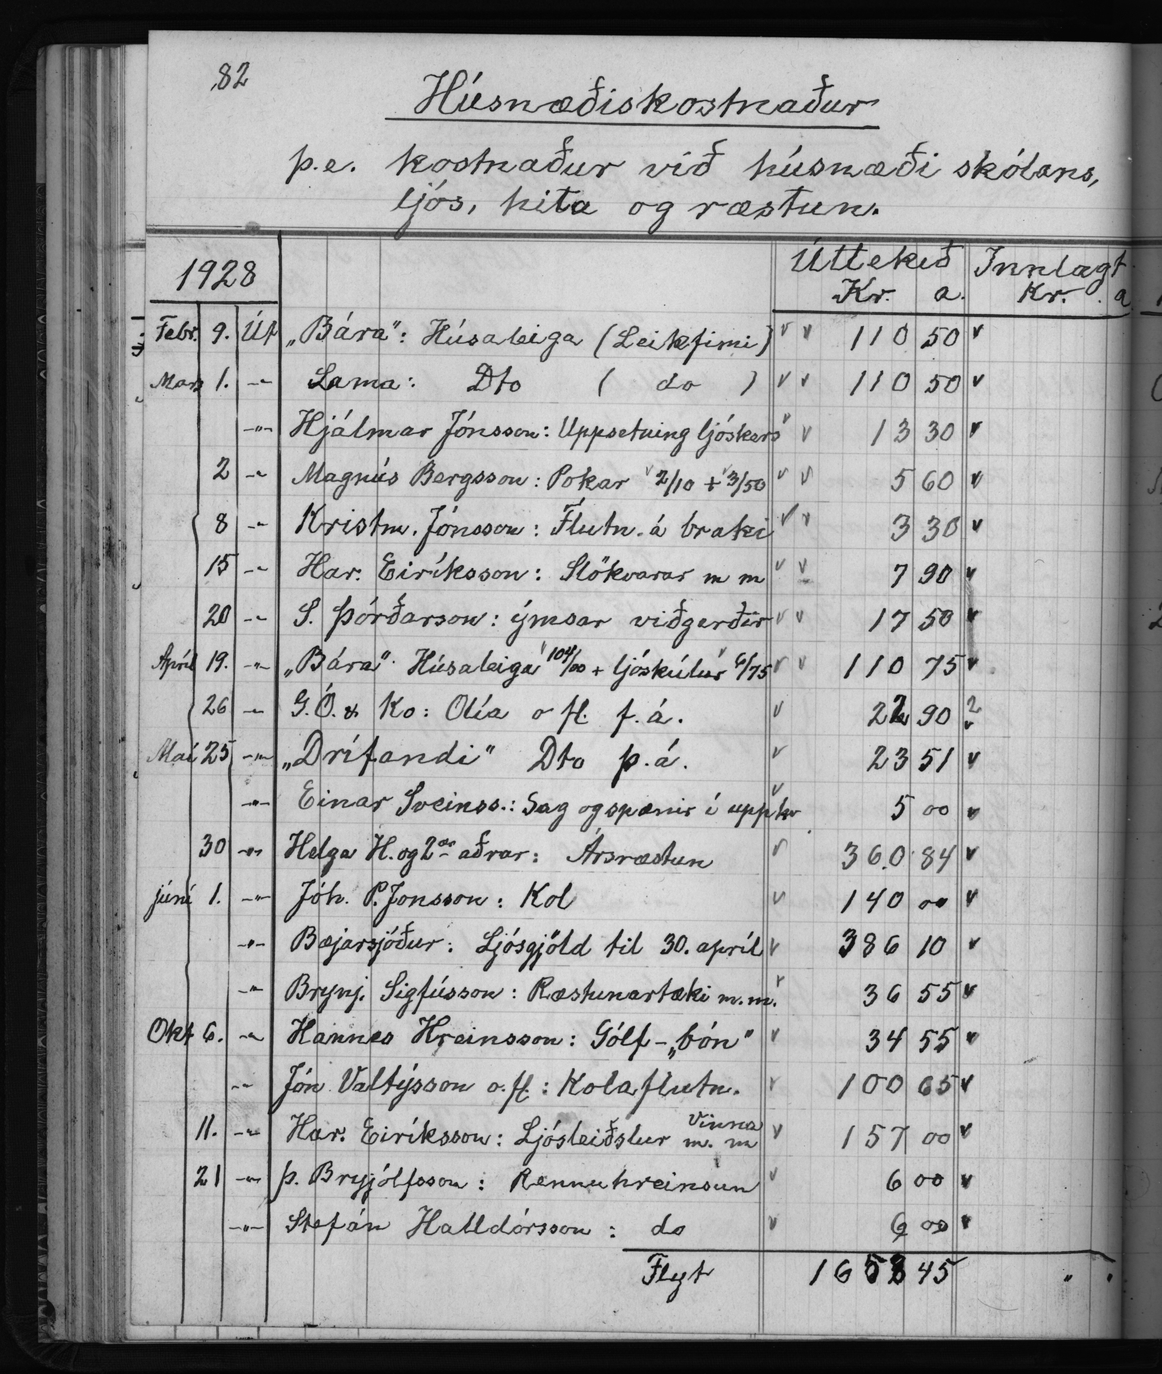 82
Húsnæðiskostnaður
þ.e. kostnaður við húsnæði skólans,
ljós, hita og ræstun.
1928 Úttekið Innlagt
Kr. a. Kr. a
Febr. 9. Út „Bára": Húsaleiga (Leikfimi) 110 50
Mars 1. -"- Sama: Dto ( do ) 110 50
-"- Hjálmar Jónsson: Uppsetning ljóskers 13 30
2 -"- Magnús Bergsson: Pokar 2/10 + 3/50 5 60
8 -"- Kristm. Jónsson: Flutn. á braki 3 30
15 -"- Har. Eiríksson: Slökvarar m m 7 90
20 -"- S. Þórðarson: ýmsar viðgerðir 17 50
Apríl 19. -"- „Bára" Húsaleiga 104/00 + ljóskúlur 6/75 110 75
26 -"- G.Ó. & Ko: Olía o fl. f.á. 90
Maí 25 -"- „Drífandi" Dto þ.á. 23 51
-"- Einar Sveinss.: Sag og spænir í uppkv 5 00
30 -"- Helga H. og 2ar aðrar: Ársræstun 360 84
júní 1. -"- Jóh. P. Jonsson: Kol 140 00
-"- Bæjarsjóður: Ljósgjöld til 30. apríl 386 10
-"- Brynj. Sigfússon: Ræstunartæki m.m. 36 55
Okt 6. -"- Hannes Hreinsson: Gólf-„bón" 34 55
-"- Jón Valtýsson o.fl: Kolaflutn. 100 65
11. -"- Har. Eiríksson: Ljósleiðslur Vinna m. m 157 00
21 -"- Þ. Bryjólfsson: Rennuhreinsun 6 00
-"- Stefán Halldórsson: do 6 00
Flyt 1658 45